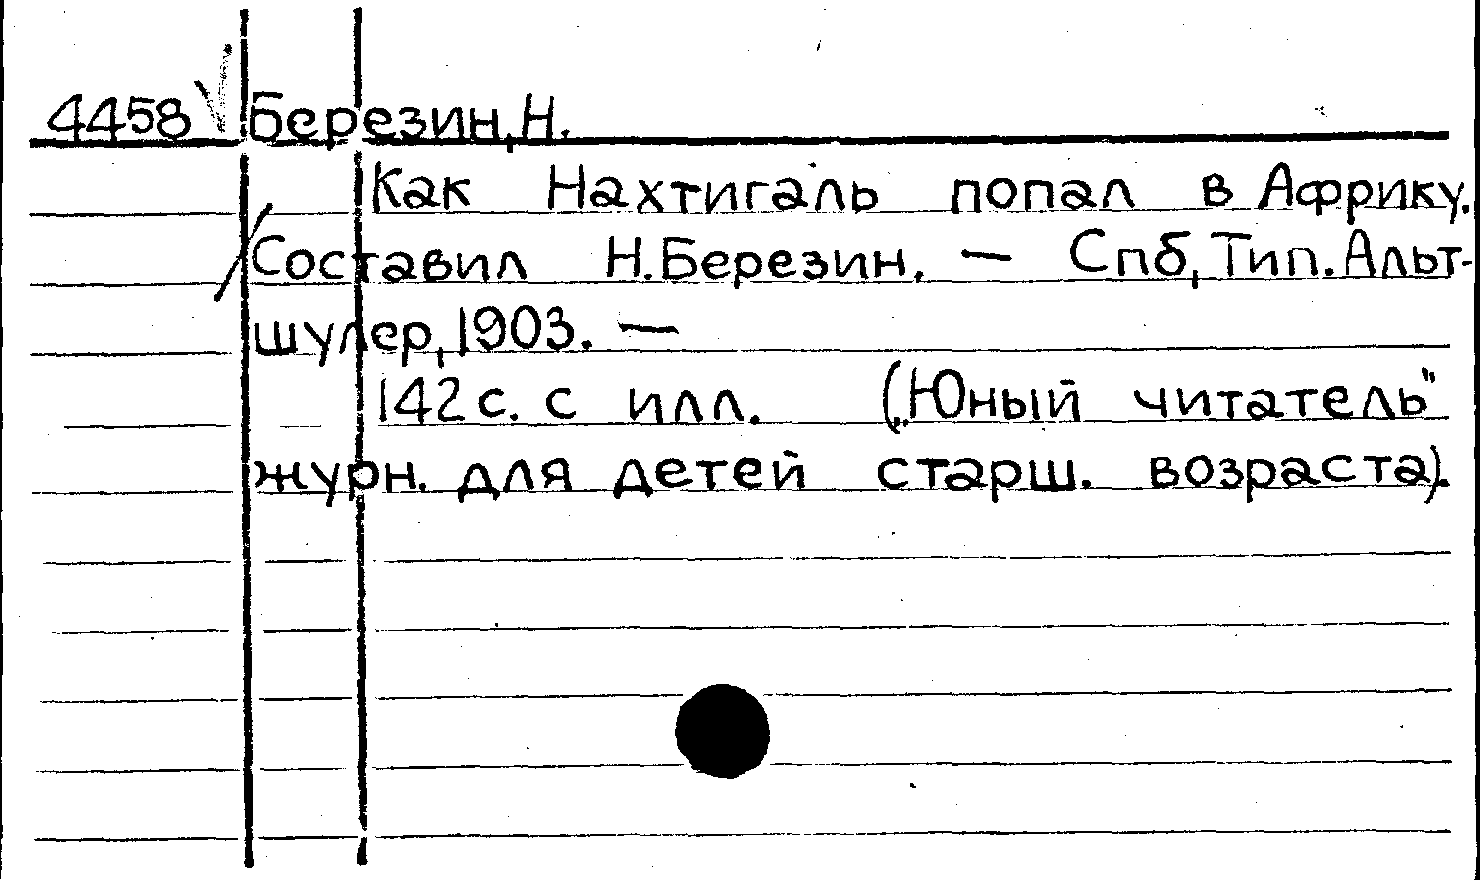 4458 Березин, Н.
Как Нахтигаль попал в Африку.
Составил Н. Березин. — Спб, Тип. Альт-
шулер, 1903. —
142 с. с илл. („Юный читатель"
журн. для детей старш. возраста).